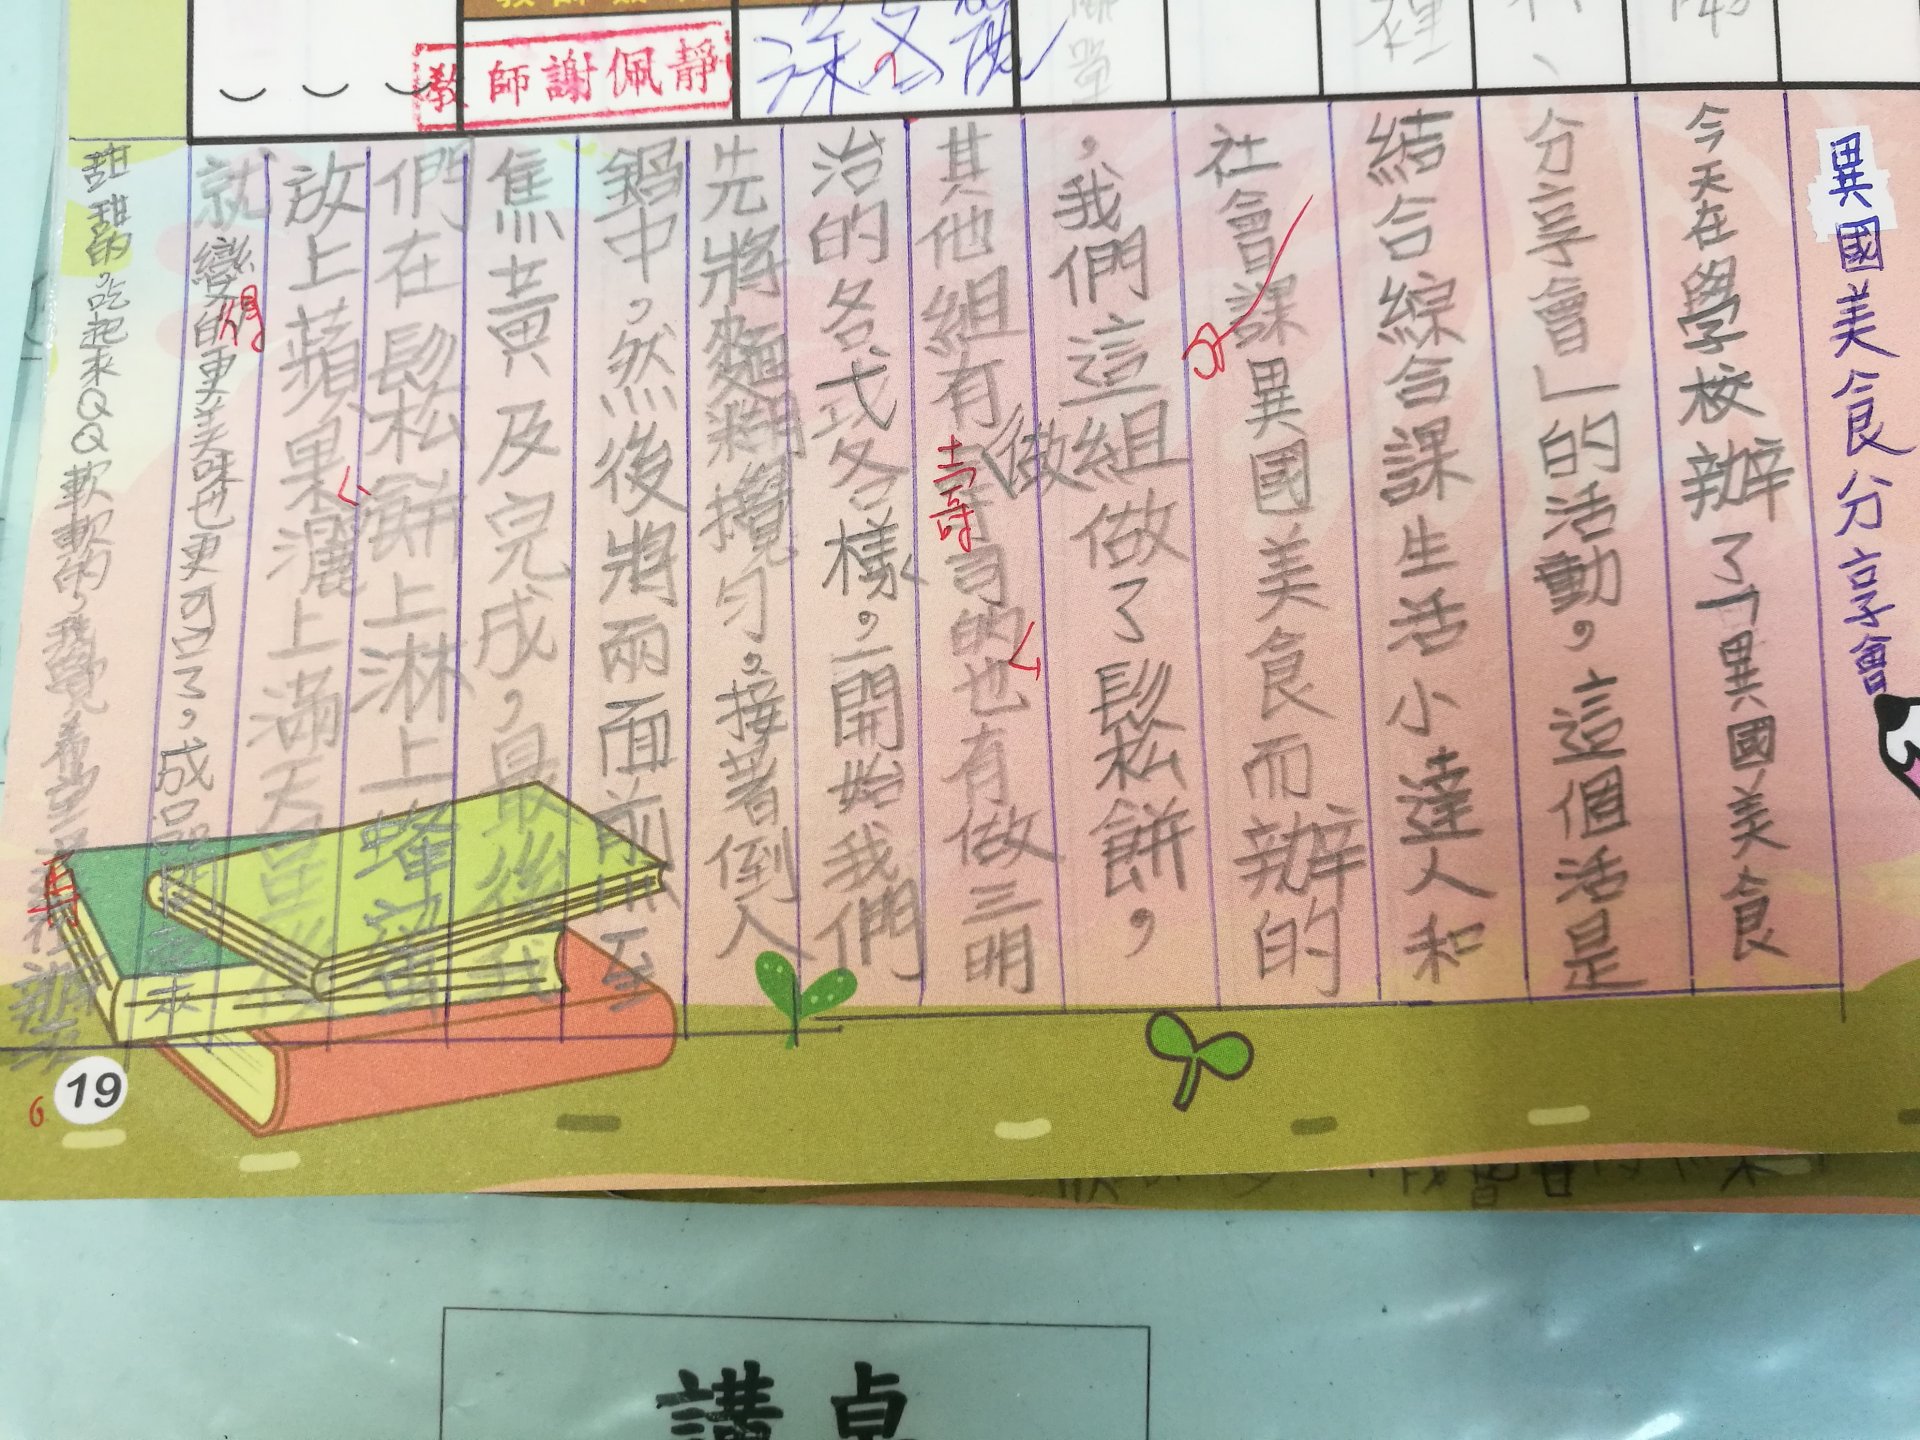 教師謝佩靜
異國美食分享會
今天在學校辦了「異國美食
分享會」的活動，這個活是
結合綜合課生活小達人和
社會課異國美食而辦的
，我們這組做了鬆餅，
其他組有做壽司的也有做三明
治的各式各樣。一開始我們
先將麵糊攪勻。接著倒入
鍋中，然後將兩面煎至
焦黃及完成，最後我
們在鬆餅上淋上蜂蜜
放上蘋果灑上滿天星後
就變得更美味也更可口了，成品
甜甜的。吃起來QQ軟軟的，我覺
19
6
講桌